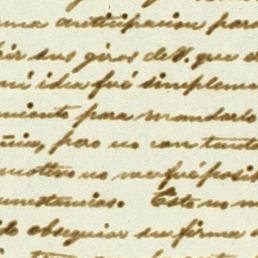 una anticipacion para
bir sus giros de V. que e
mi idea fué simpleme
miento para mandarlo
ñia, pero no con tanta
motivo no me fué posib
cunstancias. Esto no m
do obsequiar su firma